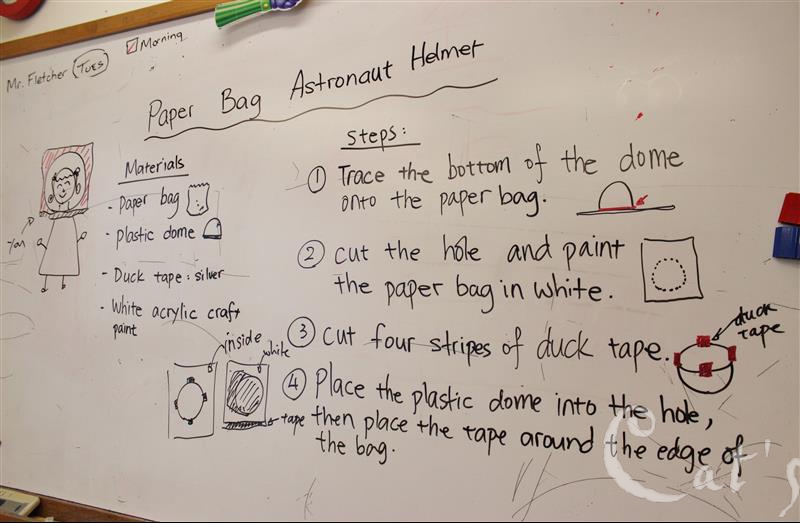 Morning
Mr. Fletcher Tues
Paper Bag Astronaut Helmet
Materials
- Paper bag
- Plastic dome
- Duck tape: silver
- White acrylic craft
paint
You
inside
white
tape
Steps:
① Trace the bottom of the dome
onto the paper bag.
② Cut the hole and paint
the paper bag in white.
③ Cut four stripes of duck tape.
duck
tape
④ Place the plastic dome into the hole,
then place the tape around the edge of
the bag.
Cat's